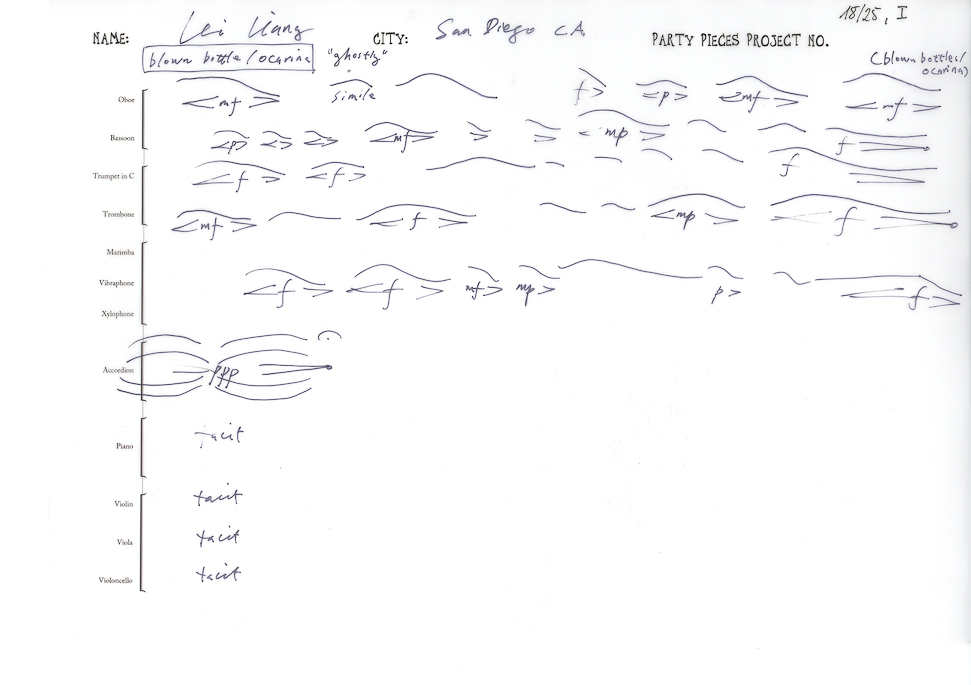 18/25, I
NAME: Lei Liang CITY: San Diego CA PARTY PIECES PROJECT NO.
blown bottle / ocarina "ghostly" (blown bottles/
ocarina)
Oboe mf simile f p mf mf
Bassoon p mf mp f
Trumpet in C f f f
Trombone mf f mp f
Marimba
Vibraphone f f mf mp p f
Xylophone
Accordion ppp
Piano tacit
Violin tacit
Viola tacit
Violoncello tacit